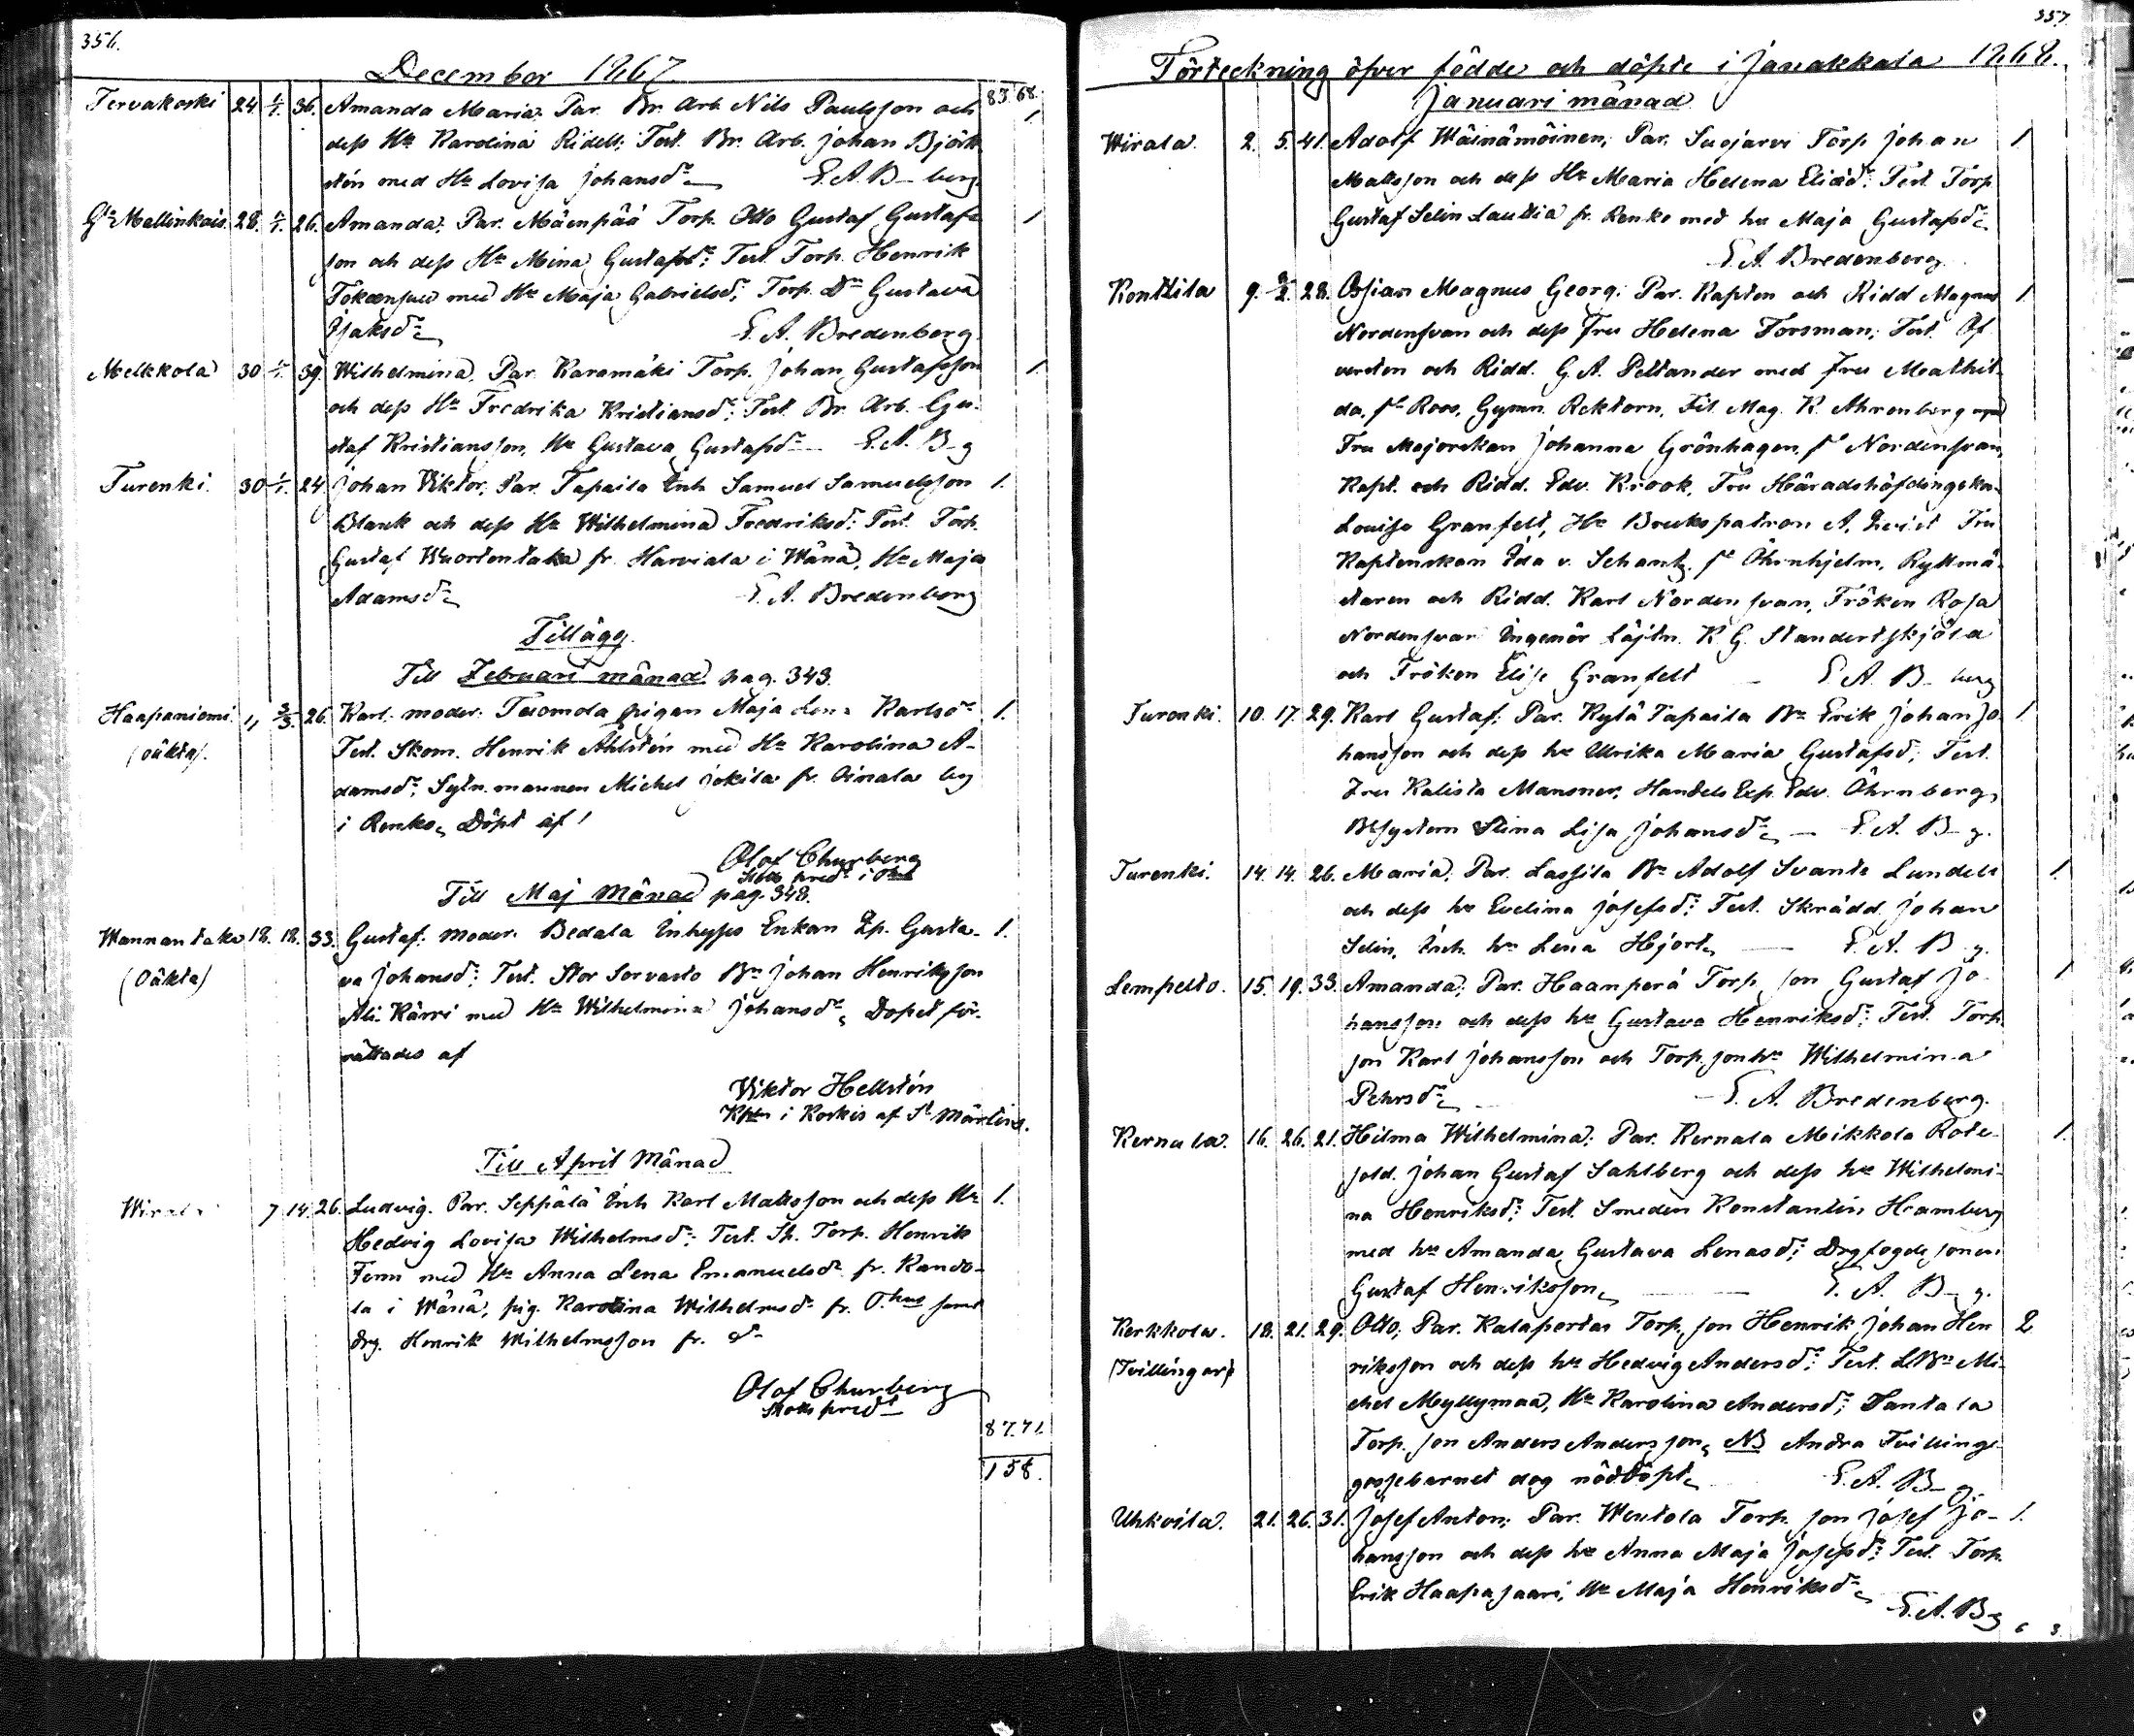 356.
December 1867.
83. 68.
Tervakoski 24. 1/1. 36. Amanda Maria; Par. Br. Arb. Nils Paulsson och 1
dess Hu Karolina Ridell; Test. Br. Arb. Johan Björk
stén med Hu Lovisa Johansdr E. A. B-berg.
Gr Mallinkais. 28. 1/1. 26. Amanda; Par. Mäenpää Torp. Otto Gustaf Gustafs 1
son och dess Hu Mina Gustafsdr; Test. Torp. Henrik
med Hu Maja Gabrielsdr, Torp. Dr Gustava
Isaksdr E. A. Bredenberg.
Melkkola 30 1/1. 39. Wilhelmina, Par. Karamäki Torp. Johan Gustafsson 1
och dess Hu Fredrika Kristiansdr; Test. Br. Arb. Gu-
staf Kristiansson, Hu Gustava Gustafsdr E. A. B-g
Turenki. 30 1/1. 24 Johan Viktor, Par. Tapaila Inh Samuel Samuelsson 1.
Blank och dess Hu Wilhelmina Fredriksdr; Test. Torp.
Gustaf Wuortentaka fr. Harviala i Wånå, Hu Maja
Adamsdr E. A. Bredenberg
Tillägg.
Till Februari månad pag. 343.
Haapaniemi. 1, 3/3. 26. Karl. moder. Tuomola pigan Maja Lena Karlsdr 1.
(oäkta). Test. Skom. Henrik Ahlstén med Hu Karolina A-
damsdr, Sytn. mannen Michel Jokila fr. Oinala by
i Renko, Döpt af!
Olof Churberg
Till Maj Månad pag. 348.
Wannantaka 18. 18. 33. Gustaf: moder. Bedala Inhyses Enkan Ep. Gusta- 1.
(Oäkta) va Johansdr; Test. Stor Sorvasto Bn Johan Henriksson
Ali-Kärri med Hu Wilhelmina Johansdr, Dopet för-
rättades af
Viktor Hellstén
Kpln i Koskis af St Mårtens.
Till April Månad
Wirala 7 14. 26. Ludvig. Par. Seppälä Inh Karl Mattsson och dess Hu 1.
Hedvig Lovisa Wilhelmsdr; Test. Sk. Torp. Henrik
med Hu Anna Lena Emanuelsdr fr. Kando-
la i Wånå, pig. Karolina Wilhelmsdr fr. samt
drg. Henrik Wilhelmsson fr. do
Olof Churberg
87. 71.
158.
357.
Förteckning öfver födde och döpte i Janakkala 1868.
Januari månad
Wirala 2. 5. 41. Adolf Wäinämöinen; Par. Suojärvi Torp Johan 1.
Mattsson och dess Hu Maria Helena Eliædr; Test. Torp.
Gustaf Selin Lautsia fr. Renko med hu Maja Gustafsdr
E. A. Bredenberg
Konttila 9. 28. Ossian Magnus Georg; Par. Kapten och Ridd Magnus 1.
Nordensvan och dess Fru Helena Forsman; Test. Öf-
versten och Ridd. G. A. Peltander med Fru Mathil-
da, f. Roos, Gymn. Rektorn, Fil. Mag. K. Ahrenberg med
Fru Majorskan Johanna Grönhagen, f. Nordensvan,
Kapt. och Ridd. Edv. Krook, Fru Häradshöfdingska
Louise Granfelt, Hr Brukspatron A. Fru
Kaptenskan Ida v. Schantz, f. Öhrnhjelm, Ryttmä-
staren och Ridd. Karl Nordensvan, Fröken Rosa
Nordensvan Ingenör Löjtn. K. G. Standertskjöld
och Fröken Elise Granfelt E. A. B-berg
Turenki. 10. 17. 29. Karl Gustaf; Par. Kylä Tapaila Bn Erik Johan Jo- 1.
hansson och dess hu Ulrika Maria Gustafsdr; Test.
Fru Kalista Mansner, Handels Exp. Edv. Öhrnberg,
Stina Lisa Johansdr E. A. B-g.
Turenki. 14. 14. 26. Maria; Par. Lassila Bn Adolf Svante Lundell 1.
och dess hu Evelina Josefsdr; Test. Skrädd. Johan
Selin, Inh. hu Lena Hjort E. A. B-g.
Lempelto. 15. 19. 33. Amanda; Par. Haanperä Torp. son Gustaf Jo- 1
hansson och dess hu Gustava Henriksdr; Test. Torp.
son Karl Johansson och Torp. son hu Wilhelmina
Pehrsdr E. A. Bredenberg.
Kernala. 16. 26. 21. Hilma Wilhelmina; Par. Kernala Mikkola Rote- 1.
sold. Johan Gustaf Sahlberg och dess hu Wilhelmi-
na Henriksdr; Test. Smeden Konstantin Hramberg
med hu Amanda Gustava Lenasdr; sonen
Gustaf Henriksson E. A. B-g.
Kerkkola. 18. 21. 29. Otto; Par. Kalapertas Torp. son Henrik Johan Hen 2
(Tvillingar) riksson och dess hu Hedvig Andersdr; Test. LBn Mi-
chel Myllymaa, Hu Karolina Andersdr; Tantala
Torp. son Anders Andersson, NB Andra Tvillings-
gossebarnet dog nöddöpt E. A. B-g.
Uhkoila. 21. 26. 31. Josef Anton; Par. Wentola Torp. son Josef Jo- 1.
hansson och dess hu Anna Maja Josefsdr; Test. Torp.
Erik Haapasaari, Hu Maja Henriksdr
E. A. B-g
6 3.